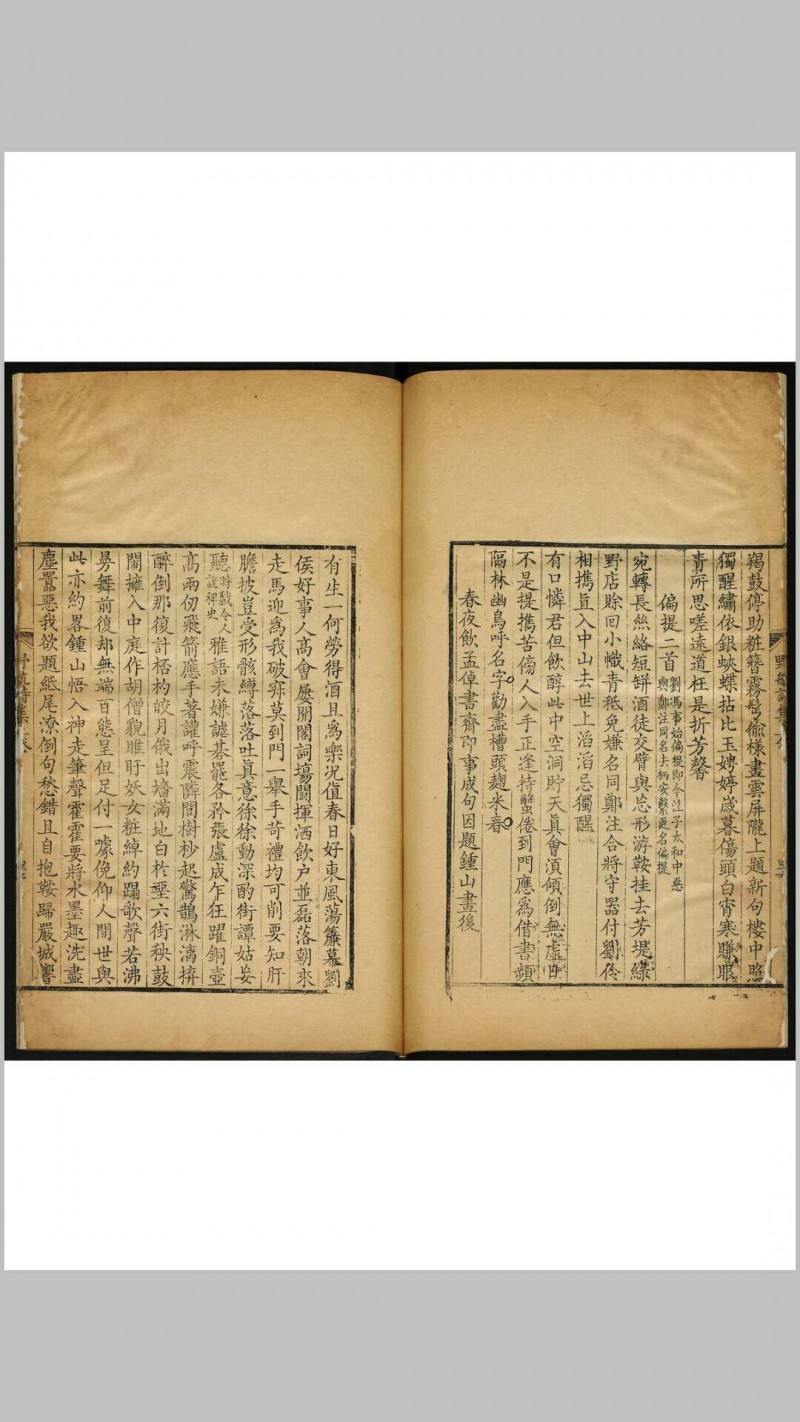 羯鼓停助粧簪霧髩偷様畫雲屏隴上題新句樓中照
獨醒繡依銀蛺蝶拈比玉娉婷歲暮傷頭白宵寒賺眼
青所思嗟遠道枉是折芳馨
偏提二首
劉馮事始偏提即今注子太和中惡
與鄭注同名去柄安繫更名偏提
宛轉長絲絡短缾酒徒交臂與忘形游鞍挂去芳堤綠
野店賒回小幟青秪免嫌名同鄭注合將守噐付劉伶
相攜直入中山去世上滔滔忌獨醒
有口憐君但飲醇此中空洞貯天真會湏傾倒無虛日
不是提攜苦傍人入手正逢持蟹倦到門應為借書頻
隔林幽鳥呼名字勸盡槽頭麴米春
春夜飲孟倬書齋即事成句因題鍾山畫後
野航詩集 卷
有生一何勞得酒且為樂況值春日好東風蕩簾幕劉
侯好事人高會屡開閣詞塲闘揮洒飲户並磊落朝來
走馬迎為我破寂莫到門一舉手苛禮均可削要知肝
膽披豈受形骸縛落落吐真意徐徐動深酌街譚姑妄
聽
時戲令人
說稗史
雅語未嫌謔碁罷各矜張盧成乍狂躍銅壺
高兩仞飛箭應手著讙呼震隣閤樹杪起驚鵲淋漓擠
醉倒那復計桮杓皎月俄出墻滿地白扵堊六街秧鼓
閙擁入中庭作胡僧貌睢盱妖女粧綽約蹋歌聲若沸
旁舞前復却無端百態呈但足付一噱俛仰人間世與
此亦約畧鍾山悟入神走筆聲霍霍要將水墨趣洗盡
塵嚚惡我欲題紙尾潦倒句愁錯且自抱鞍歸嚴城響
野航詩集 卷